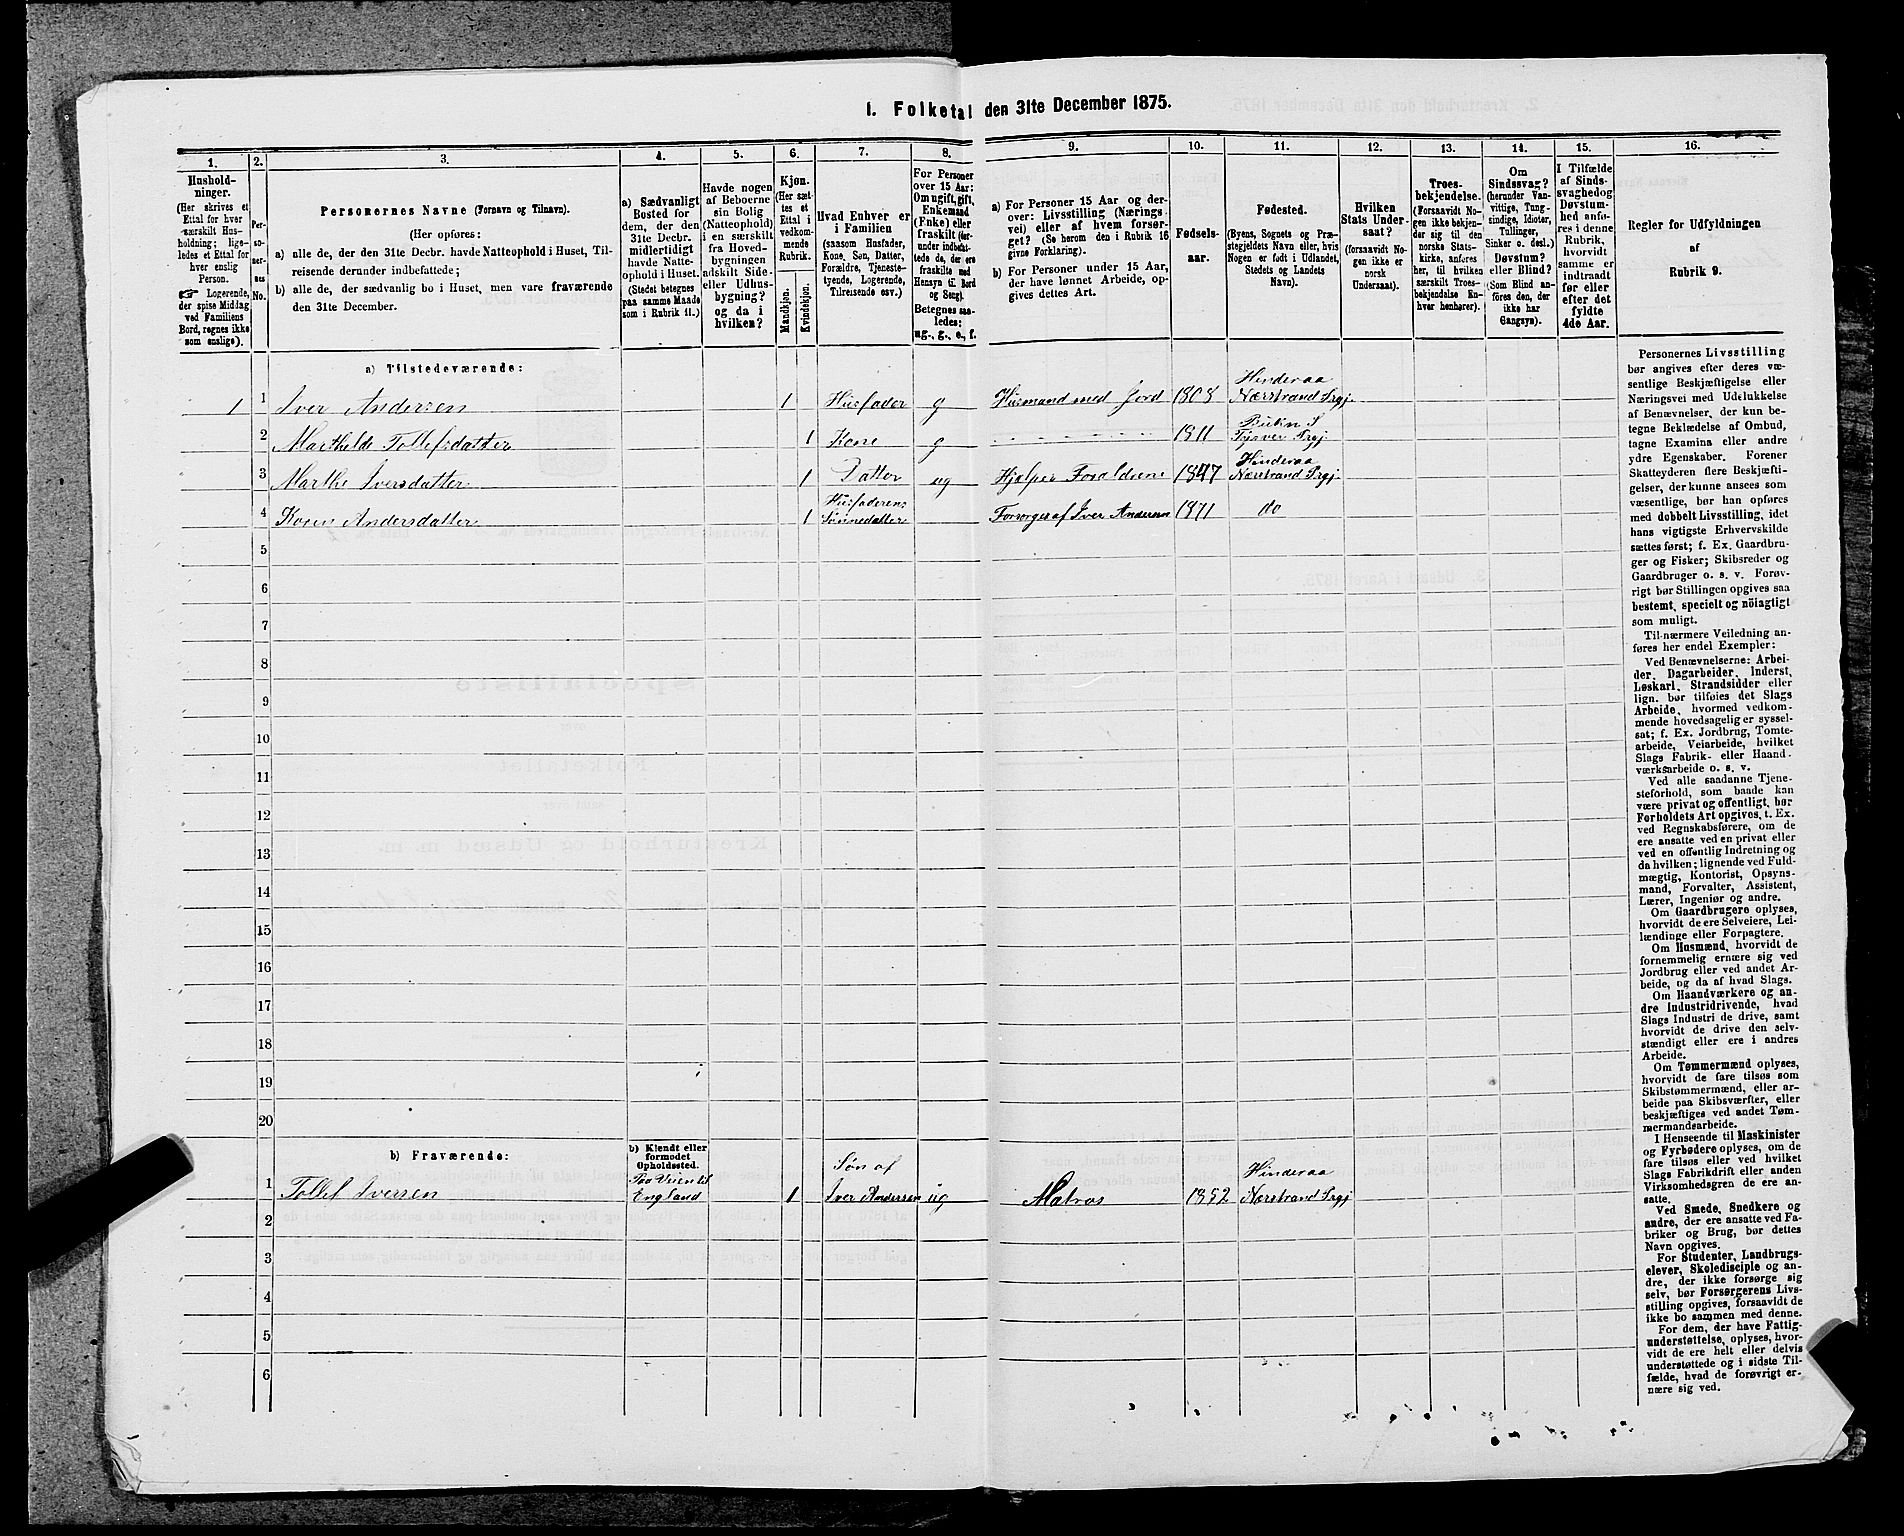 1. Folketal den 31te December 1875.
1. 2. 3. 4. 5. 6. 7. 8. 9. 10. 11. 12. 13. 14. 15. 16.
Hushold-
ninger.
(Her skrives et
Ettal for hver
særskilt Hus-
holdning; lige-
ledes et Ettal for
hver enslig
Person.
☞ Logerende,
der spise Middag
ved Familiens
Bord, regnes ikke
som enslige).
Per-
so-
ner-
nes
No.
Personernes Navne (Fornavn og Tilnavn).
(Her opføres:
a) alle de, der den 31te Decbr. havde Natteophold i Huset, Til-
reisende derunder indbefattede;
b) alle de, der sædvanlig bo i Huset, men vare fraværende
den 31te December.
a) Sædvanligt
Bosted for
dem, der den
31te Decbr.
midlertidigt
havde Natte-
ophold i Huset.
(Stedet betegnes
paa samme Maade
som i Rubrik 11.)
Havde nogen
af Beboerne
sin Bolig
(Natteophold)
i en særskilt
fra Hoved-
bygningen
adskilt Side-
eller Udhus-
bygning?
og da i
hvilken?
Kjøn.
(Her sæt-
tes et
Ettal i
vedkom-
mende
Rubrik.
Mandkjøn.
Kvindekjøn.
Hvad Enhver er
i Familien
(saasom Husfader,
Kone, Søn, Datter,
Forældre, Tjeneste-
tyende, Logerende,
Tilreisende osv.)
For Personer
over 15 Aar:
Om ugift, gift,
Enkemand
(Enke) eller
fraskilt (her-
under indbefat-
tede de, der ere
fraskilte med
Hensyn til Bord
og Seng).
Betegnes saa-
ledes:
ug., g., e., f.
a) For Personer 15 Aar og der-
over: Livsstilling (Nærings-
vei) eller af hvem forsør-
get? (Se herom den i Rubrik 16
givne Forklaring).
b) For Personer under 15 Aar,
der have lønnet Arbeide, op-
gives dettes Art.
Fødsels-
aar.
Fødested.
(Byens, Sognets og Præ-
stegjeldets Navn eller, hvis
Nogen er født i Udlandet,
Stedets og Landets
Navn).
Hvilken
Stats Under-
saat?
(forsaavidt No-
gen ikke er
norsk
Undersaat).
Troes-
bekjendelse.
(Forsaavidt No-
gen ikke bekjen-
der sig til den
norske Stats-
kirke, anføres
her, til hvilken
særskilt Troes-
bekjendelse En-
hver henhører).
Om
Sindssvag?
(herunder Van-
vittige, Tung-
sindige, Idioter,
Tullinger,
Sinker o. desl.)
Døvstum?
eller Blind?
(Som Blind an-
føres den, der
ikke har
Gangsyn).
I Tilfælde
af Sinds-
svaghed og
Døvstum-
hed anfø-
res i denne
Rubrik,
hvorvidt
samme er
indtraadt
før eller
efter det
fyldte
4de Aar.
Regler for Udfyldningen
af
Rubrik 9.
a) Tilstedeværende:
1 1 Iver Andersen 1 Husfader g Husmand med Jord 1808 Hinderaa Nærstrand Prgj.
2 Marthilde Tollefsdatter 1 Kone g 1811 Tysvær Prgj
3 Marthe Iversdatter 1 Datter ug Hjælper Forældrene 1847 Hinderaa Nærstrand Prgj.
4 Karen Andersdatter 1 Husfaderens Sønnedatter Forsørges af Iver Andersen 1871 do
5
6
7
8
9
10
11
12
13
14
15
16
17
18
19
20
b) Fraværende:
b) Kjendt eller
formodet
Opholdssted.
1 Tollef Iversen Paa Veien til England 1 Søn af Iver Andersen ug Matros 1852 Hinderaa Nærstrand Prgj
2
3
4
5
6
Personernes Livsstilling
bør angives efter deres væ-
sentlige Beskjæftigelse eller
Næringsvei med Udelukkelse
af Benævnelser, der kun be-
tegne Beklædelse af Ombud,
tagne Examina eller andre
ydre Egenskaber. Forener
Skatteyderen flere Beskjæfti-
gelser, der kunne ansees som
væsentlige, bør han opføres
med dobbelt Livsstilling, idet
hans vigtigste Erhvervskilde
sættes først; f. Ex. Gaardbru-
ger og Fisker; Skibsreder og
Gaardbruger o. s. v. Forøv-
rigt bør Stillingen opgives saa
bestemt, specielt og nöiagtigt
som muligt.
Til nærmere Veiledning an-
føres her endel Exempler:
Ved Benævnelserne: Arbei-
der, Dagarbeider, Inderst,
Løskarl, Strandsidder eller
lign. bør tilføies det Slags
Arbeide, hvormed vedkom-
mende hovedsagelig er syssel-
sat; f. Ex. Jordbrug, Tomte-
arbeide, Veiarbeide, hvilket
Slags Fabrik- eller Haand-
værksarbeide o. s. v.
Ved alle saadanne Tjene-
steforhold, som baade kan
være privat og offentligt, bør
Forholdets Art opgives, t. Ex.
ved Regnskabsførere, om de
ere ansatte ved en privat eller
ved en offentlig Indretning og
da hvilken; lignende ved Fuld-
mægtig, Kontorist, Opsyns-
mand, Forvalter, Assistent,
Lærer, Ingeniør og andre.
Om Gaardbrugere oplyses,
hvorvidt de ere Selveiere, Lei-
lændinge eller Forpagtere.
Om Husmænd, hvorvidt de
fornemmelig ernære sig ved
Jordbrug eller ved andet Ar-
beide, og da af hvad Slags.
Om Haandværkere og an-
dre Industridrivende, hvad
Slags Industri de drive, samt
hvorvidt de drive den selv-
stændigt eller ere i andres
Arbeide.
Om Tømmermænd oplyses,
hvorvidt de fare tilsøs som
Skibstømmermænd, eller ar-
beide paa Skibsværfter, eller
beskjæftiges ved andet Tøm-
mermandsarbeide.
I Henseende til Maskinister
og Fyrbødere oplyses, om de
fare tilsøs eller ved hvilket
Slags Fabrikdrift eller anden
Virksomhedsgren de ere an-
satte.
Ved Smede, Snedkere og
andre, der ere ansatte ved Fa-
briker og Brug, bør dettes
Navn opgives.
For Studenter, Landbrugs-
elever, Skoledisciple og an-
dre, der ikke forsørge sig
selv, bør Forsørgerens Livs-
stilling opgives, forsaavidt de
ikke bo sammen med denne.
For dem, der have Fattig-
understøttelse, oplyses, hvor-
vidt de ere helt eller delvis
understøttede og i sidste Til-
fælde, hvad de forøvrigt er-
nære sig ved.